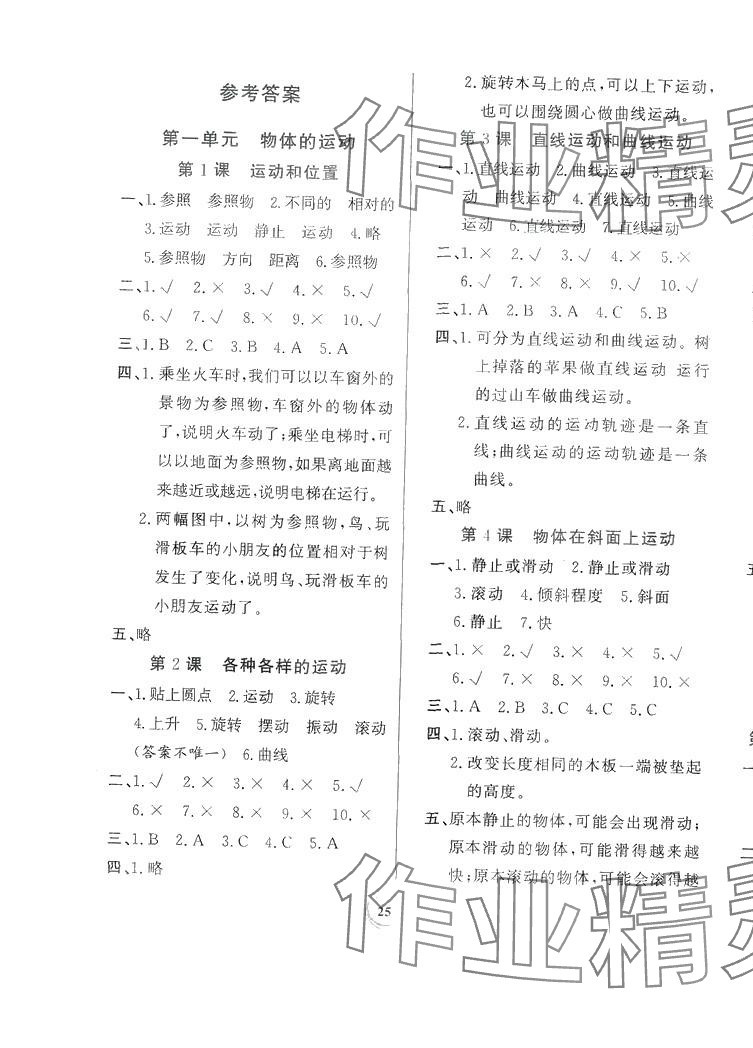 参考答案
第一单元 物体的运动
第1课 运动和位置
一、1.参照 参照物 2.不同的 相对的
3.运动 运动 静止 运动 4.略
5.参照物 方向 距离 6.参照物
二、1.√ 2.× 3.√ 4.× 5.√
6.√ 7.√ 8.× 9.× 10.√
三、1.B 2.C 3.B 4.A 5.A
四、1.乘坐火车时,我们可以以车窗外的
景物为参照物,车窗外的物体动
了,说明火车动了;乘坐电梯时,可
以以地面为参照物,如果离地面越
来越近或越远,说明电梯在运行。
2.两幅图中,以树为参照物,鸟、玩
滑板车的小朋友的位置相对于树
发生了变化,说明鸟、玩滑板车的
小朋友运动了。
五、略
第2课 各种各样的运动
一、1.贴上圆点 2.运动 3.旋转
4.上升 5.旋转 摆动 振动 滚动
(答案不唯一) 6.曲线
二、1.√ 2.× 3.× 4.× 5.√
6.× 7.× 8.× 9.× 10.×
三、1.B 2.A 3.C 4.C 5.A
四、1.略
2.旋转木马上的点,可以上下运动,
也可以围绕圆心做曲线运动。
第3课 直线运动和曲线运动
一、1.直线运动 2.曲线运动 3.直线运
动 曲线运动 4.直线运动 5.曲线
运动 6.直线运动 7.直线运动
二、1.× 2.√ 3.√ 4.× 5.×
6.√ 7.× 8.× 9.√ 10.√
三、1.A 2.B 3.A 4.C 5.B
四、1.可分为直线运动和曲线运动。树
上掉落的苹果做直线运动 运行
的过山车做曲线运动。
2.直线运动的运动轨迹是一条直
线;曲线运动的运动轨迹是一条
曲线。
五、略
第4课 物体在斜面上运动
一、1.静止或滑动 2.静止或滑动
3.滚动 4.倾斜程度 5.斜面
6.静止 7.快
二、1.× 2.√ 3.× 4.× 5.×
6.√ 7.× 8.√ 9.√ 10.×
三、1.A 2.B 3.C 4.C 5.C
四、1.滚动、滑动。
2.改变长度相同的木板一端被垫起
的高度。
五、原本静止的物体,可能会出现滑动;
原本滑动的物体,可能滑得越来越
快;原本滚动的物体,可能会滚得越
25
作业精灵
作业精灵